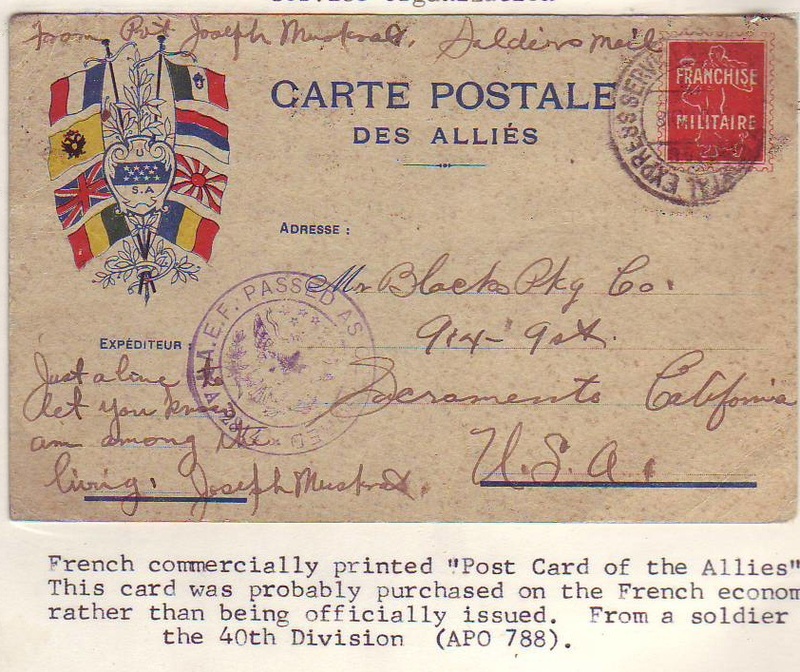 service organization
From Pvt Joseph Muskrat, Soldiers mail
CARTE POSTALE
DES ALLIÉS
FRANCHISE
MILITAIRE
POSTAL EXPRESS SERVICE
U
S.A
ADRESSE :
Mr Blacks Pkg Co.
914-9st.
Sacramento California
U.S.A.
A.E.F. PASSED AS
EXPÉDITEUR :
Just a line to
let you know
am among the
living.
Joseph Muskrat.
French commercially printed "Post Card of the Allies"
This card was probably purchased on the French econom
rather than being officially issued. From a soldier
the 40th Division (APO 788).